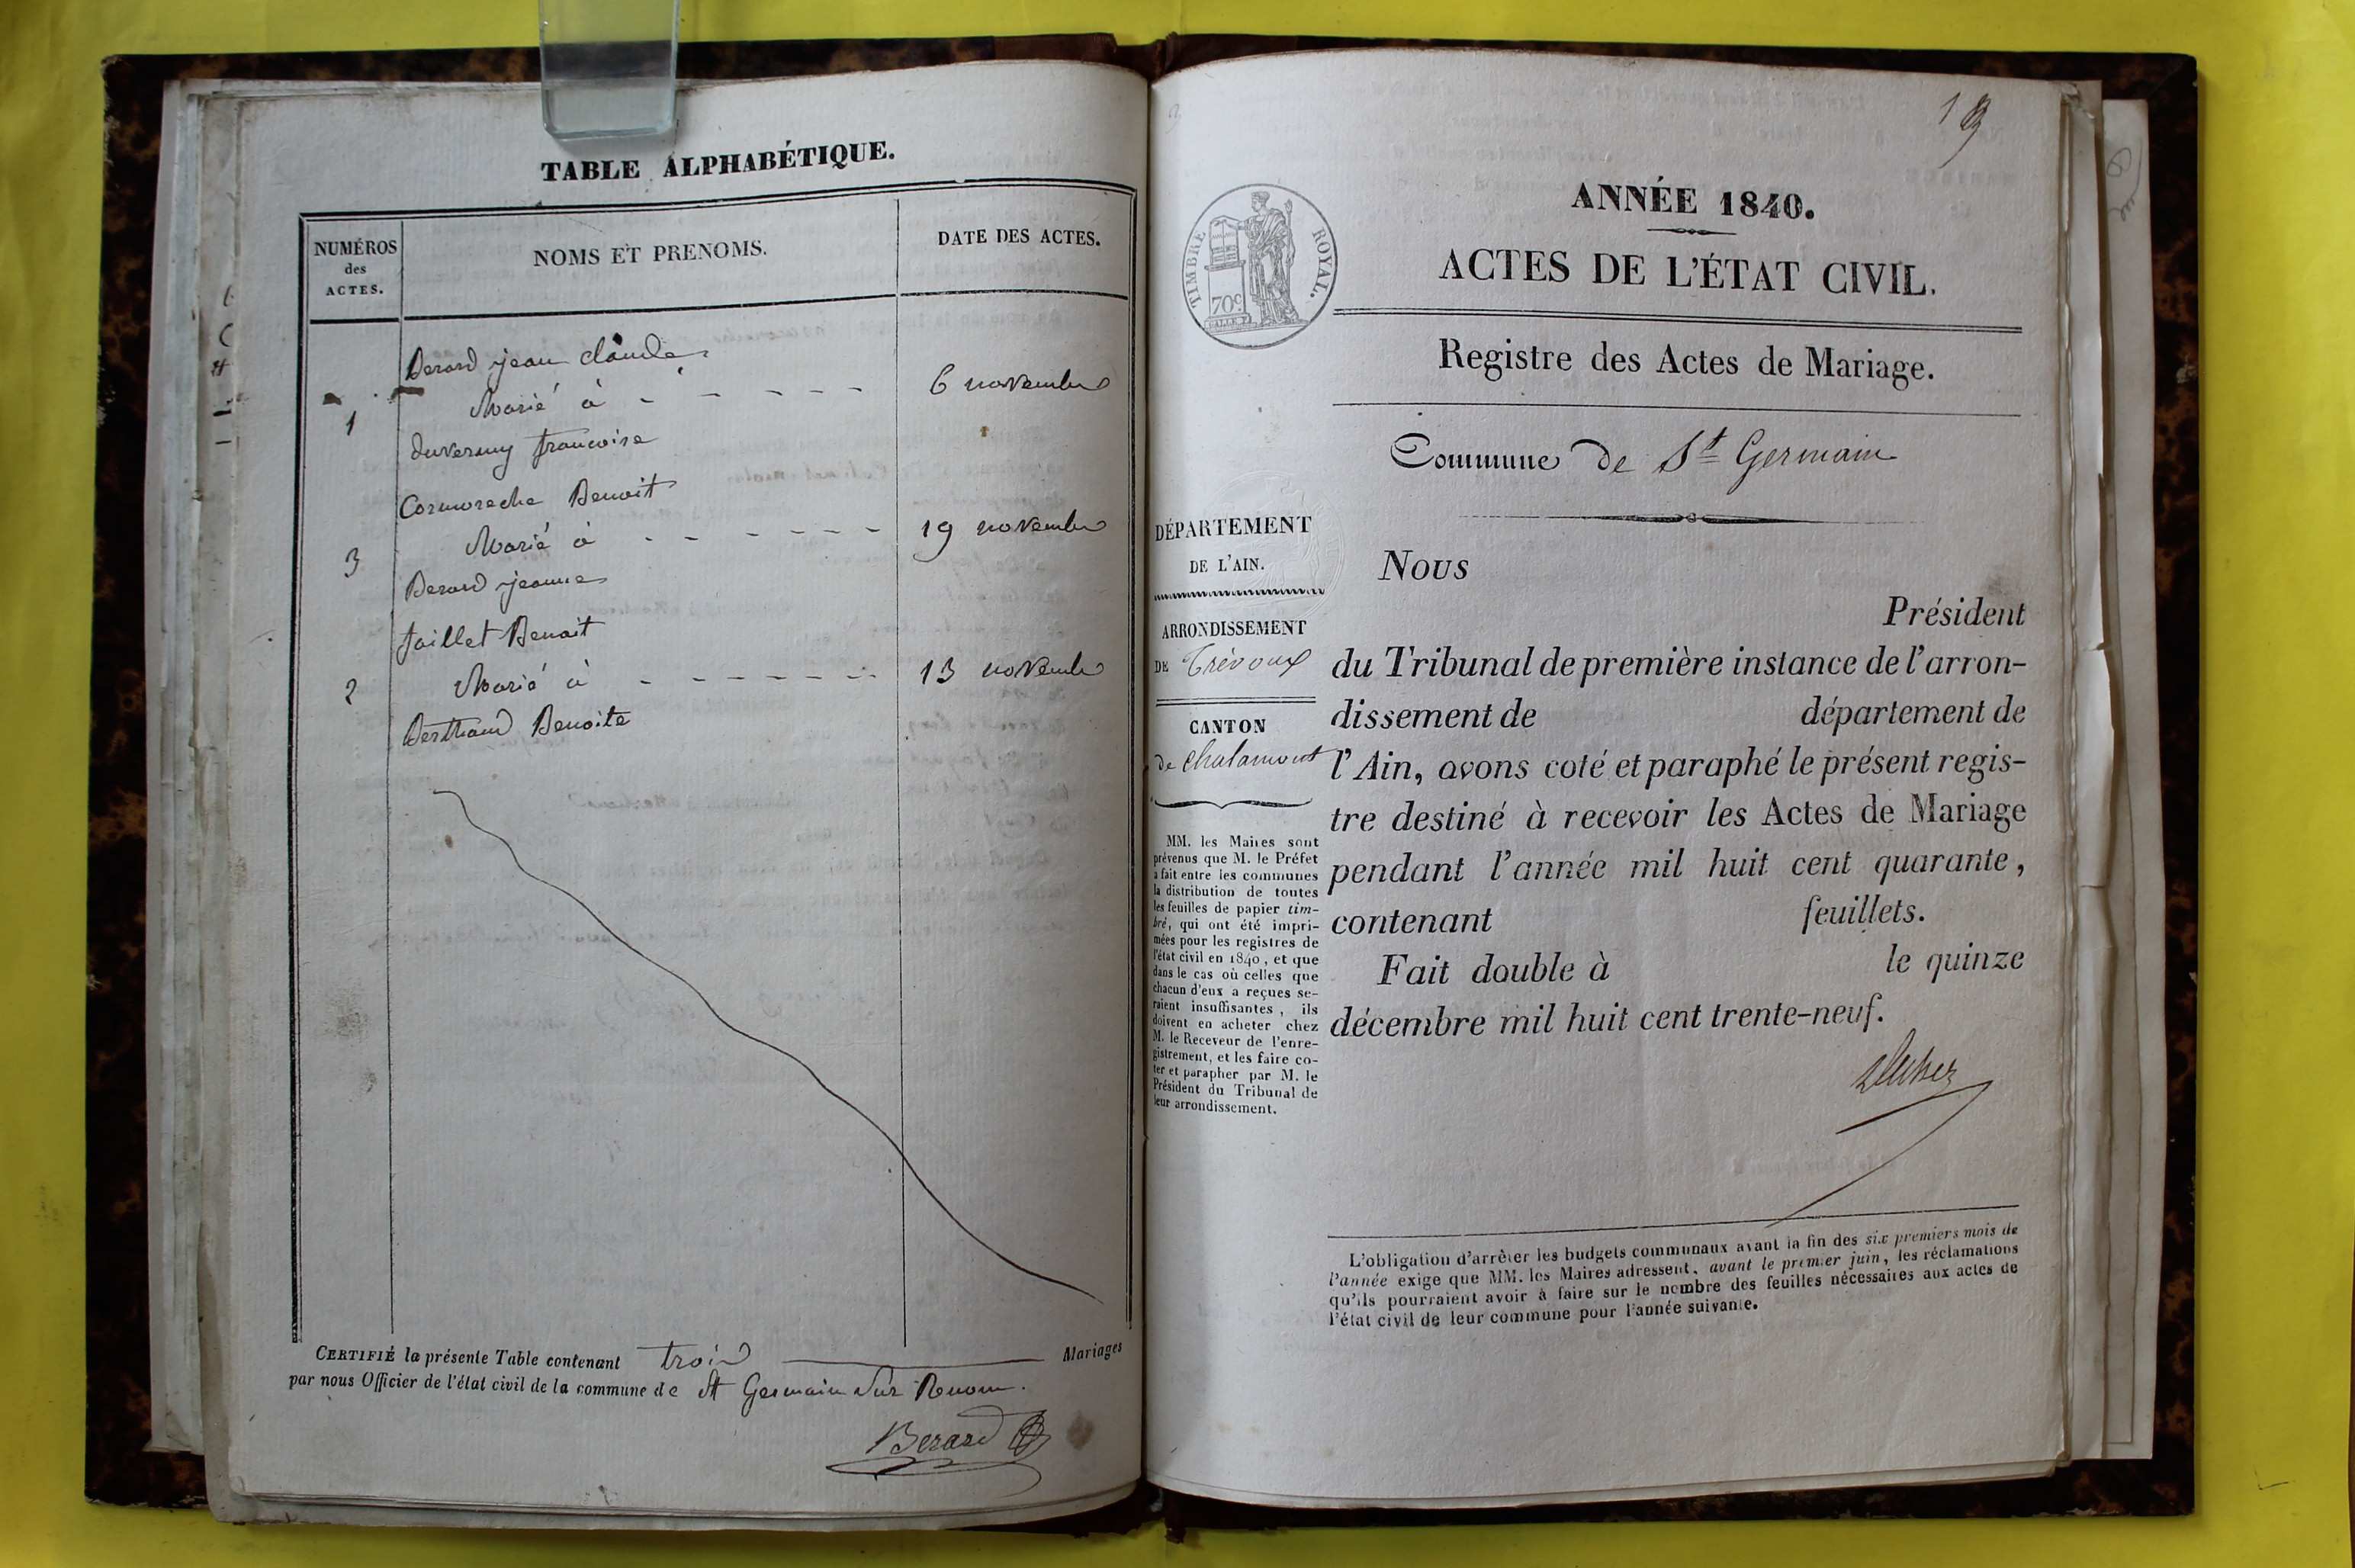 TABLE ALPHABÉTIQUE.
NUMÉROS
des
ACTES.
NOMS ET PRENOMS.
DATE DES ACTES.
Berard jean claude
1 Marié à - - - - - 6 novembre
duvernay francoise
Cormoreche Benoit
3 Marié à - - - - - - 19 novembre
Berard jeanne
Jaillet Benoit
2 Marié à - - - - - - - 13 novembre
Berthaud Benoite
CERTIFIÉ la présente Table contenant trois Mariages
par nous Officier de l'état civil de la commune de St Germain sur Renom.
Berard
19
TIMBRE ROYAL.
70c
ANNÉE 1840.
ACTES DE L'ÉTAT CIVIL.
Registre des Actes de Mariage.
Commune de St Germain
DÉPARTEMENT
DE L'AIN.
ARRONDISSEMENT
DE Trévoux
CANTON
de Chalamont
MM. les Maires sont
prévenus que M. le Préfet
a fait entre les communes
la distribution de toutes
les feuilles de papier tim-
bré, qui ont été impri-
mées pour les registres de
l'état civil en 1840, et que
dans le cas où celles que
chacun d'eux a reçues se-
raient insuffisantes, ils
doivent en acheter chez
M. le Receveur de l'enre-
gistrement, et les faire co-
ter et parapher par M. le
Président du Tribunal de
leur arrondissement.
Nous
Président
du Tribunal de première instance de l'arron-
dissement de département de
l'Ain, avons coté et paraphé le présent regis-
tre destiné à recevoir les Actes de Mariage
pendant l'année mil huit cent quarante,
contenant feuillets.
Fait double à le quinze
décembre mil huit cent trente-neuf.
L'obligation d'arrêter les budgets communaux avant la fin des six premiers mois de
l'année exige que MM. les Maires adressent, avant le premier juin, les réclamations
qu'ils pourraient avoir à faire sur le nombre des feuilles nécessaires aux actes de
l'état civil de leur commune pour l'année suivante.